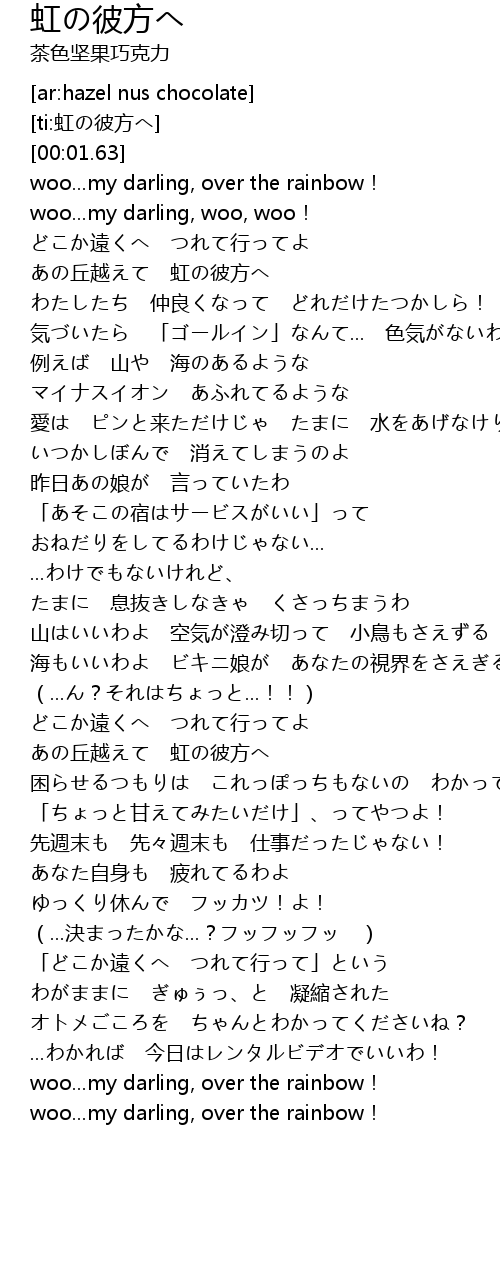 虹の彼方へ
茶色坚果巧克力
[ar:hazel nus chocolate]
[ti:虹の彼方へ]
[00:01.63]
woo...my darling, over the rainbow！
woo...my darling, woo, woo！
どこか遠くへ　つれて行ってよ
あの丘越えて　虹の彼方へ
わたしたち　仲良くなって　どれだけたつかしら！
気づいたら　「ゴールイン」なんて…　色気がないわ
例えば　山や　海のあるような
マイナスイオン　あふれてるような
愛は　ピンと来ただけじゃ　たまに　水をあげなけり
いつかしぼんで　消えてしまうのよ
昨日あの娘が　言っていたわ
「あそこの宿はサービスがいい」って
おねだりをしてるわけじゃない…
…わけでもないけれど、
たまに　息抜きしなきゃ　くさっちまうわ
山はいいわよ　空気が澄み切って　小鳥もさえずる
海もいいわよ　ビキニ娘が　あなたの視界をさえぎる
（…ん？それはちょっと…！！）
どこか遠くへ　つれて行ってよ
あの丘越えて　虹の彼方へ
困らせるつもりは　これっぽっちもないの　わかって
「ちょっと甘えてみたいだけ」、ってやつよ！
先週末も　先々週末も　仕事だったじゃない！
あなた自身も　疲れてるわよ
ゆっくり休んで　フッカツ！よ！
（…決まったかな…？フッフッフッ　）
「どこか遠くへ　つれて行って」という
わがままに　ぎゅぅっ、と　凝縮された
オトメごころを　ちゃんとわかってくださいね？
…わかれば　今日はレンタルビデオでいいわ！
woo...my darling, over the rainbow！
woo...my darling, over the rainbow！